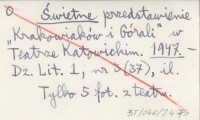 O Świetne przedstawienie
„Krakowiaków i Górali” w
Teatrze Katowickim. 1947. –
Dz. Lit. 1, nr 3 (37), il.
Tylko 5 fot. z teatru.